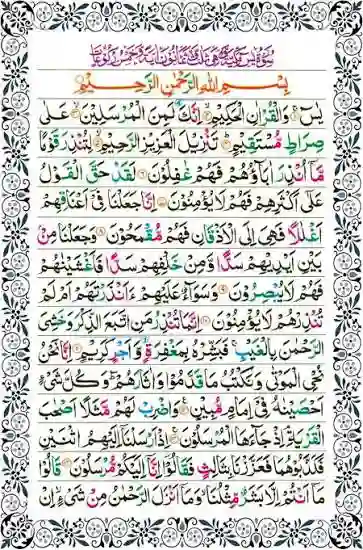 سُوْرَةُ يٰسٓ مَكِّيَّةٌ وَّهِيَ ثَلَاثٌ وَّثَمَانُوْنَ اٰيَةً وَّخَمْسُ رُكُوْعَاتٍ
بِسْمِ اللّٰهِ الرَّحْمٰنِ الرَّحِيْمِ
يٰسٓ ۚ وَالْقُرْاٰنِ الْحَكِيْمِ ۙ اِنَّكَ لَمِنَ الْمُرْسَلِيْنَ ۙ عَلٰى
صِرَاطٍ مُّسْتَقِيْمٍ ؕ تَنْزِيْلَ الْعَزِيْزِ الرَّحِيْمِ ۙ لِتُنْذِرَ قَوْمًا
مَّاۤ اُنْذِرَ اٰبَآؤُهُمْ فَهُمْ غٰفِلُوْنَ ۶ لَقَدْ حَقَّ الْقَوْلُ
عَلٰۤى اَكْثَرِهِمْ فَهُمْ لَا يُؤْمِنُوْنَ ۷ اِنَّا جَعَلْنَا فِيْۤ اَعْنَاقِهِمْ
اَغْلٰلًا فَهِيَ اِلَى الْاَذْقَانِ فَهُمْ مُّقْمَحُوْنَ ۸ وَجَعَلْنَا مِنْۢ
بَيْنِ اَيْدِيْهِمْ سَدًّا وَّمِنْ خَلْفِهِمْ سَدًّا فَاَغْشَيْنٰهُمْ
فَهُمْ لَا يُبْصِرُوْنَ ۹ وَسَوَآءٌ عَلَيْهِمْ ءَاَنْذَرْتَهُمْ اَمْ لَمْ
تُنْذِرْهُمْ لَا يُؤْمِنُوْنَ ۱۰ اِنَّمَا تُنْذِرُ مَنِ اتَّبَعَ الذِّكْرَ وَخَشِيَ
الرَّحْمٰنَ بِالْغَيْبِ ۚ فَبَشِّرْهُ بِمَغْفِرَةٍ وَّاَجْرٍ كَرِيْمٍ ۱۱ اِنَّا نَحْنُ
نُحْيِ الْمَوْتٰى وَنَكْتُبُ مَا قَدَّمُوْا وَاٰثَارَهُمْ ؕ وَكُلَّ شَيْءٍ
اَحْصَيْنٰهُ فِيْۤ اِمَامٍ مُّبِيْنٍ ۱۲ وَاضْرِبْ لَهُمْ مَّثَلًا اَصْحٰبَ
الْقَرْيَةِ ۘ اِذْ جَآءَهَا الْمُرْسَلُوْنَ ۱۳ اِذْ اَرْسَلْنَاۤ اِلَيْهِمُ اثْنَيْنِ
فَكَذَّبُوْهُمَا فَعَزَّزْنَا بِثَالِثٍ فَقَالُوْۤا اِنَّاۤ اِلَيْكُمْ مُّرْسَلُوْنَ ۱۴ قَالُوْا
مَاۤ اَنْتُمْ اِلَّا بَشَرٌ مِّثْلُنَا ۙ وَمَاۤ اَنْزَلَ الرَّحْمٰنُ مِنْ شَيْءٍ ۙ اِنْ